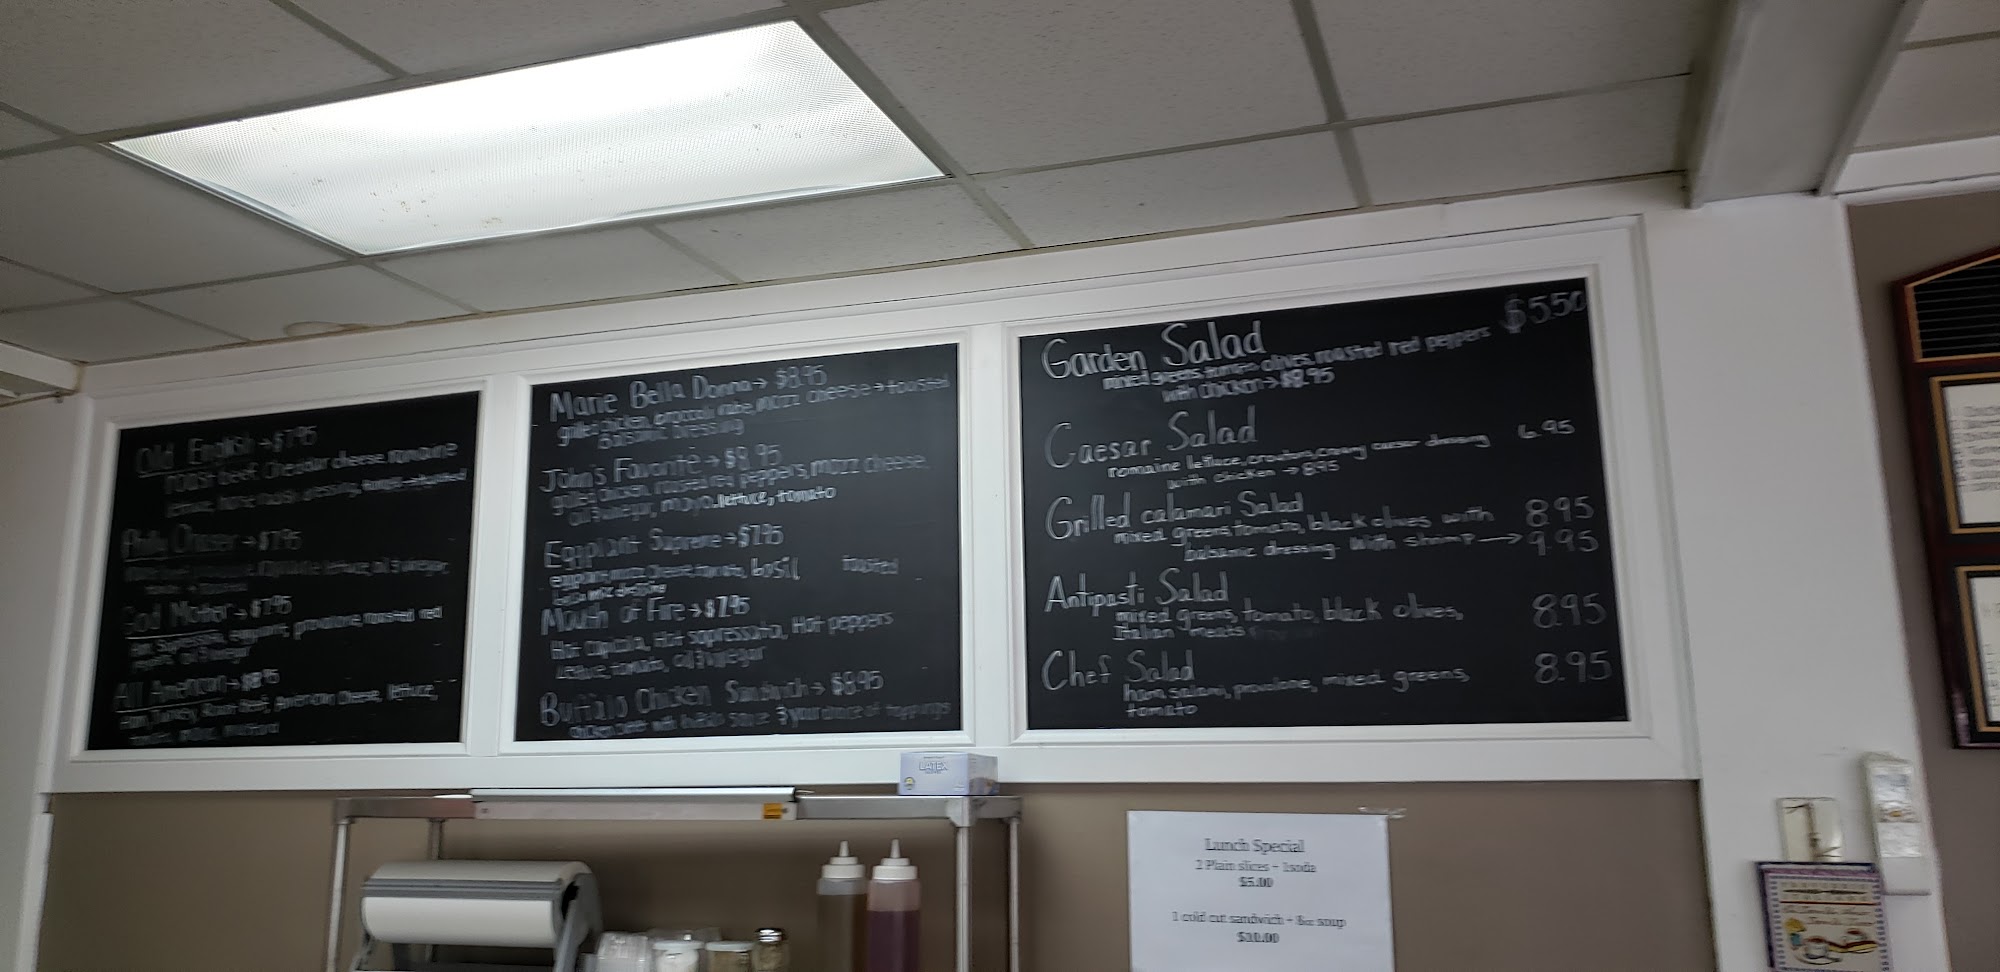 Old English → $7.95
roast beef, cheddar cheese, romaine
lettuce, horse radish dressing, toasted
Chaser → $7.95
romaine lettuce, oil & vinegar,
God Mother → $7.95
hot eggplant, provolone, roasted red
oil & vinegar
All American → $8.95
ham, turkey, Roast Beef, American cheese, lettuce,
mayo, mustard
Marie Bella Donna → $8.95
grilled chicken, broccoli rabe, mozz cheese → toasted
Balsamic Dressing
John's Favorite → $8.95
grilled chicken, roasted red peppers, mozz cheese,
oil & vinegar, mayo, lettuce, tomato
Eggplant Supreme → $7.95
eggplant, mozz cheese, tomato, basil toasted
Mouth of Fire → $7.95
Hot capicola, Hot sopressata, Hot peppers
lettuce, tomato, oil & vinegar
Buffalo Chicken Sandwich → $8.95
chicken with buffalo sauce & your choice of toppings
Garden Salad $5.50
mixed greens, tomato, olives, roasted red peppers
with chicken → $8.95
Caesar Salad 6.95
romaine lettuce, croutons, creamy caesar dressing
with chicken → 8.95
Grilled calamari Salad 8.95
mixed greens, tomato, black olives with
balsamic dressing. With shrimp → 9.95
Antipasti Salad 8.95
mixed greens, tomato, black olives,
Italian meats
Chef Salad 8.95
ham, salami, provolone, mixed greens,
tomato
LATEX
Lunch Special
2 Plain slices + 1soda
$5.00
1 cold cut sandwich + 8oz soup
$10.00